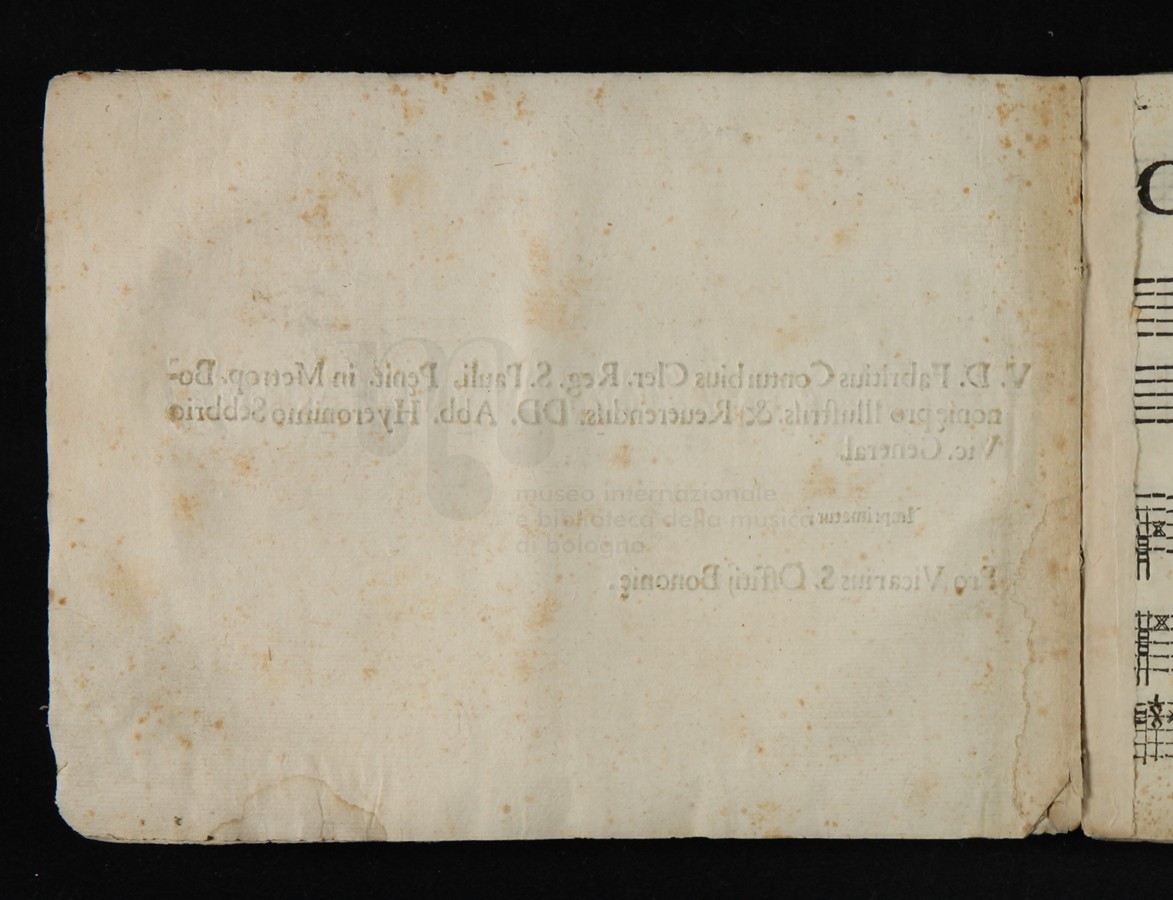 V. D. Fabritius Conturbius Cler. Reg. S. Pauli, Pęnit. in Metrop. Bo-
nonię pro Illustriss. & Reuerendiss. DD. Abb. Hyeronimo
Vic. General.
Imprimatur;
Pro Vicarius S. Offitij Bononię.
museo internazionale
e biblioteca della musica
di bologna